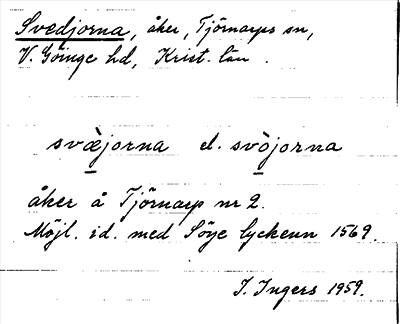 Svedjorna, åker, Tjörnarps sn,
V. Göinge hd, Krist. län.
svæ̀jorna el. svòjorna
åker å Tjörnarp nr 2.
Möjl. id. med Söye lyckenn 1569.
I. Ingers 1959.